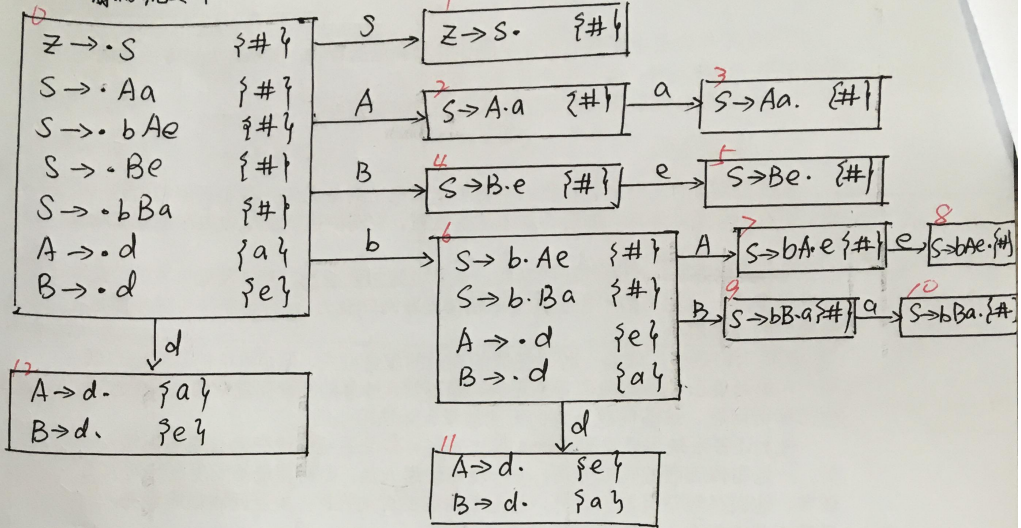 0
Z → ·S {#}
S → ·Aa {#}
S → ·bAe {#}
S → ·Be {#}
S → ·bBa {#}
A → ·d {a}
B → ·d {e}
S
1
Z → S· {#}
A
2
S → A·a {#}
a
3
S → Aa. {#}
B
4
S → B·e {#}
e
5
S → Be· {#}
b
6
S → b·Ae {#}
S → b·Ba {#}
A → ·d {e}
B → ·d {a}
A
7
S → bA·e {#}
e
8
S → bAe· {#}
B
9
S → bB·a {#}
a
10
S → bBa. {#
d
12
A → d. {a}
B → d. {e}
d
11
A → d. {e}
B → d. {a}